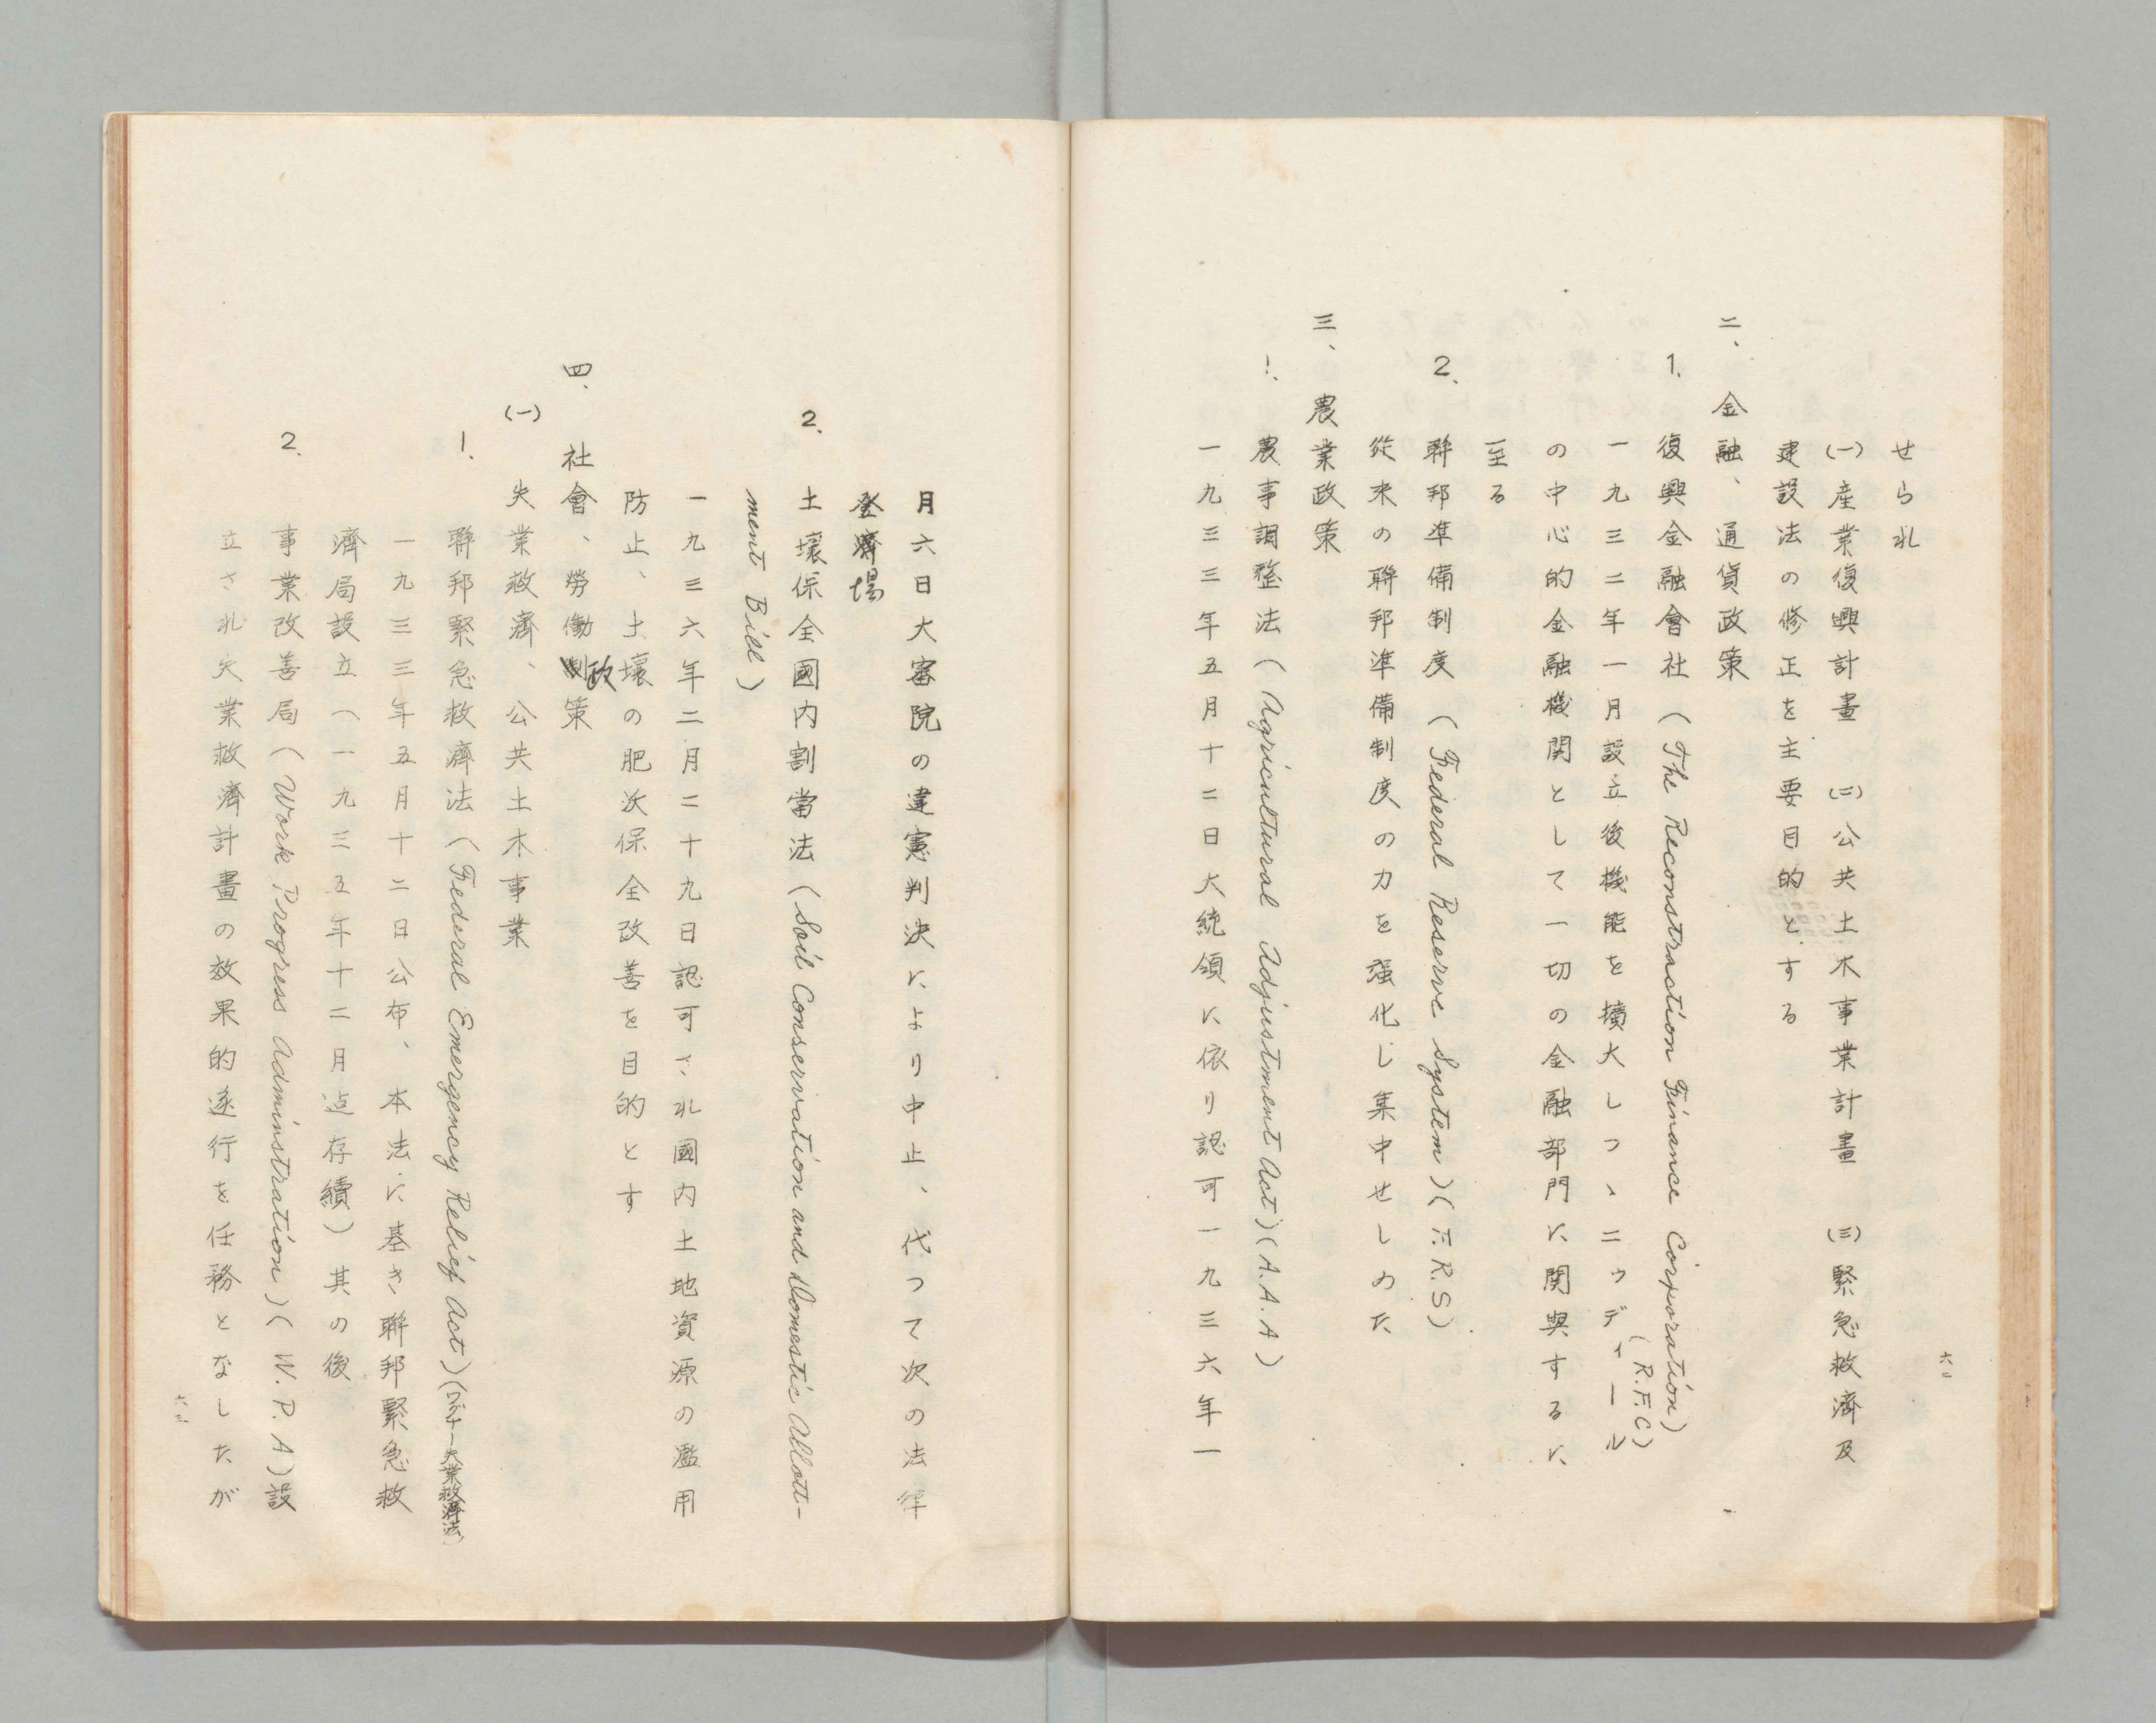 せられ
(一)産業復興計畫 (二)公共土木事業計畫 (三)緊急救濟及
建設法の修正を主要目的とする
二、金融、通貨政策
1. 復興金融會社 (The Reconstruction Finance Corporation)
(R.F.C)
一九三二年一月設立後機能を擴大しつゝニウディール
の中心的金融機関として一切の金融部門に関與するに
至る
2. 聯邦準備制度 (Federal Reserve System)(F.R.S)
從来の聯邦準備制度の力を强化し集中せしめた
三、農業政策
1. 農事調整法 (Agricultural Adjustment Act)(A.A.A)
一九三三年五月十二日大統領に依り認可一九三六年一
六二
月六日大審院の違憲判決により中止、代つて次の法律
登場
2. 土壤保全國内割當法 (Soil Conservation and Domestic Allott-
ment Bill)
一九三六年二月二十九日認可され國内土地資源の濫用
防止、土壤の肥沃保全改善を目的とす
四、社會、勞働政策
(一) 失業救濟、公共土木事業
1. 聯邦緊急救濟法 (Federal Emergency Relief Act)(ワグナー失業救濟法)
一九三三年五月十二日公布、本法に基き聯邦緊急救
濟局設立(一九三五年十二月迄存續)其の後
2. 事業改善局 (Work Progress Adminstration)(W.P.A)設
立され失業救濟計畫の效果的遂行を任務となしたが
六三